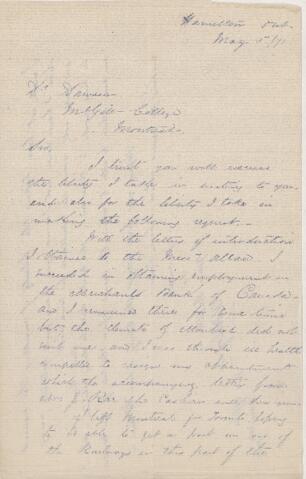 Hamilton Ont.
May 5/71
Dr Dawson
McGill College
Montreal.
Sir,
I trust you will excuse
the liberty I take in writing to you
and also for the liberty I take in
making the following request.
With the letters of introduction
I obtained to the Messrs Allan I
succeeded in obtaining employment in
the Merchants Bank of Canada
and I remained there for some time
but the climate of Montreal did not
suit me and I was through ill health
compelled to resign my appointment
which the accompanying letter from
the Cashier
I left Montreal for Toronto hoping
to be able to get a post on one of
the Railways in this part of the